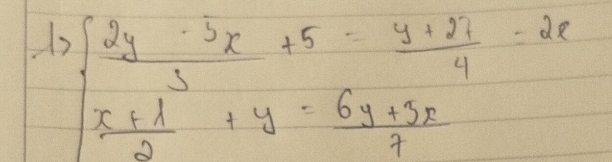 1> { (2y - 5x)/3 + 5 = (y + 27)/4 - 2x
(x + 1)/2 + y = (6y + 3x)/7